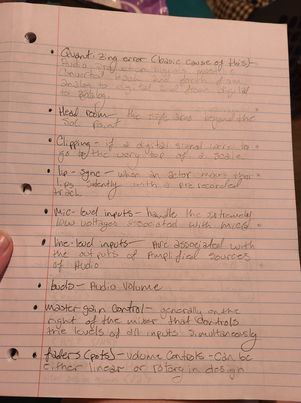 • Quantizing error (basic cause of this) -
Audio
converted back and forth from
analog to digital and from digital
to analog.
• Head room - the safe area beyond the
point
• Clipping - if a digital signal were to
go to the very top of a scale
• lip-sync - when an actor moves their
lips silently with a pre recorded
track
• Mic-level inputs - handle the extremely
low voltages associated with mics
• line-level inputs - Are associated with
the outputs of Amplified sources
of Audio
• - Audio Volume
• master gain control - generally on the
right of the mixer that controls
the levels of all inputs simultaneously
• faders (pots) - volume controls - can be
either linear or rotary in design